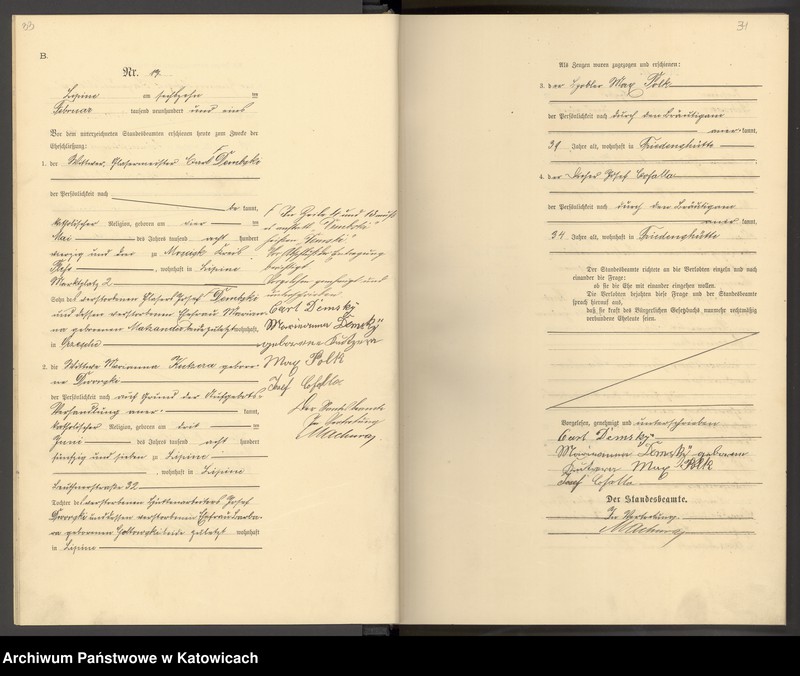 33
B.
Nr. 19.
Lipine am sechszehn ten
Februar tausend neunhundert und eins
Vor dem unterzeichneten Standesbeamten erschienen heute zum Zwecke der
Eheschließung:
1. der Wittwer, Glasermeister Carl Dembski
der Persönlichkeit nach
be kannt,
katholischer Religion, geboren am vier ten
Mai des Jahres tausend acht hundert
vierzig und vier zu Kreis
, wohnhaft in Lipine
Marktplatz 2
Sohn des verstorbenen Glasers Josef Dembski
und dessen verstorbenen Ehefrau Marian-
na geborenen zuletzt wohnhaft
in
2. die Wittwe Marianna Kutzera gebore-
ne Dworzke
der Persönlichkeit nach auf Grund der Aufgebots-
Verhandlung aner- kannt,
katholischer Religion, geboren am drei ten
Juni des Jahres tausend acht hundert
fünfzig und sieben zu Lipine
, wohnhaft in Lipine
22
Tochter des verstorbenen Hüttenarbeiters Josef
Dworzke und dessen verstorbenen Ehefrau Barba-
ra geborenen beide zuletzt wohnhaft
in Lipine
In Zeile 4 und
anstatt "Dembski"
"Demski"
Eintragung
berichtigt
Vorgelesen, genehmigt und
unterschrieben
Carl Demsky
Marianna Demsky
geborene Kutzera
Max Polk
Josef Cofalla
Der Standesbeamte
In Vertretung
Machura
31
Als Zeugen waren zugezogen und erschienen:
3. der Max Polk
der Persönlichkeit nach durch den Bräutigam
aner- kannt,
31 Jahre alt, wohnhaft in Friedenshütte
4. der Josef Cofalla
der Persönlichkeit nach durch den Bräutigam
aner- kannt,
34 Jahre alt, wohnhaft in Friedenshütte
Der Standesbeamte richtete an die Verlobten einzeln und nach
einander die Frage:
ob sie die Ehe mit einander eingehen wollen.
Die Verlobten bejahten diese Frage und der Standesbeamte
sprach hierauf aus,
daß sie kraft des Bürgerlichen Gesetzbuchs nunmehr rechtmäßig
verbundene Eheleute seien.
Vorgelesen, genehmigt und unterschrieben
Carl Demsky
Marianna Demsky geborene
Kutzera Max Polk
Josef Cofalla
Der Standesbeamte.
In Vertretung
Machura
Archiwum Państwowe w Katowicach